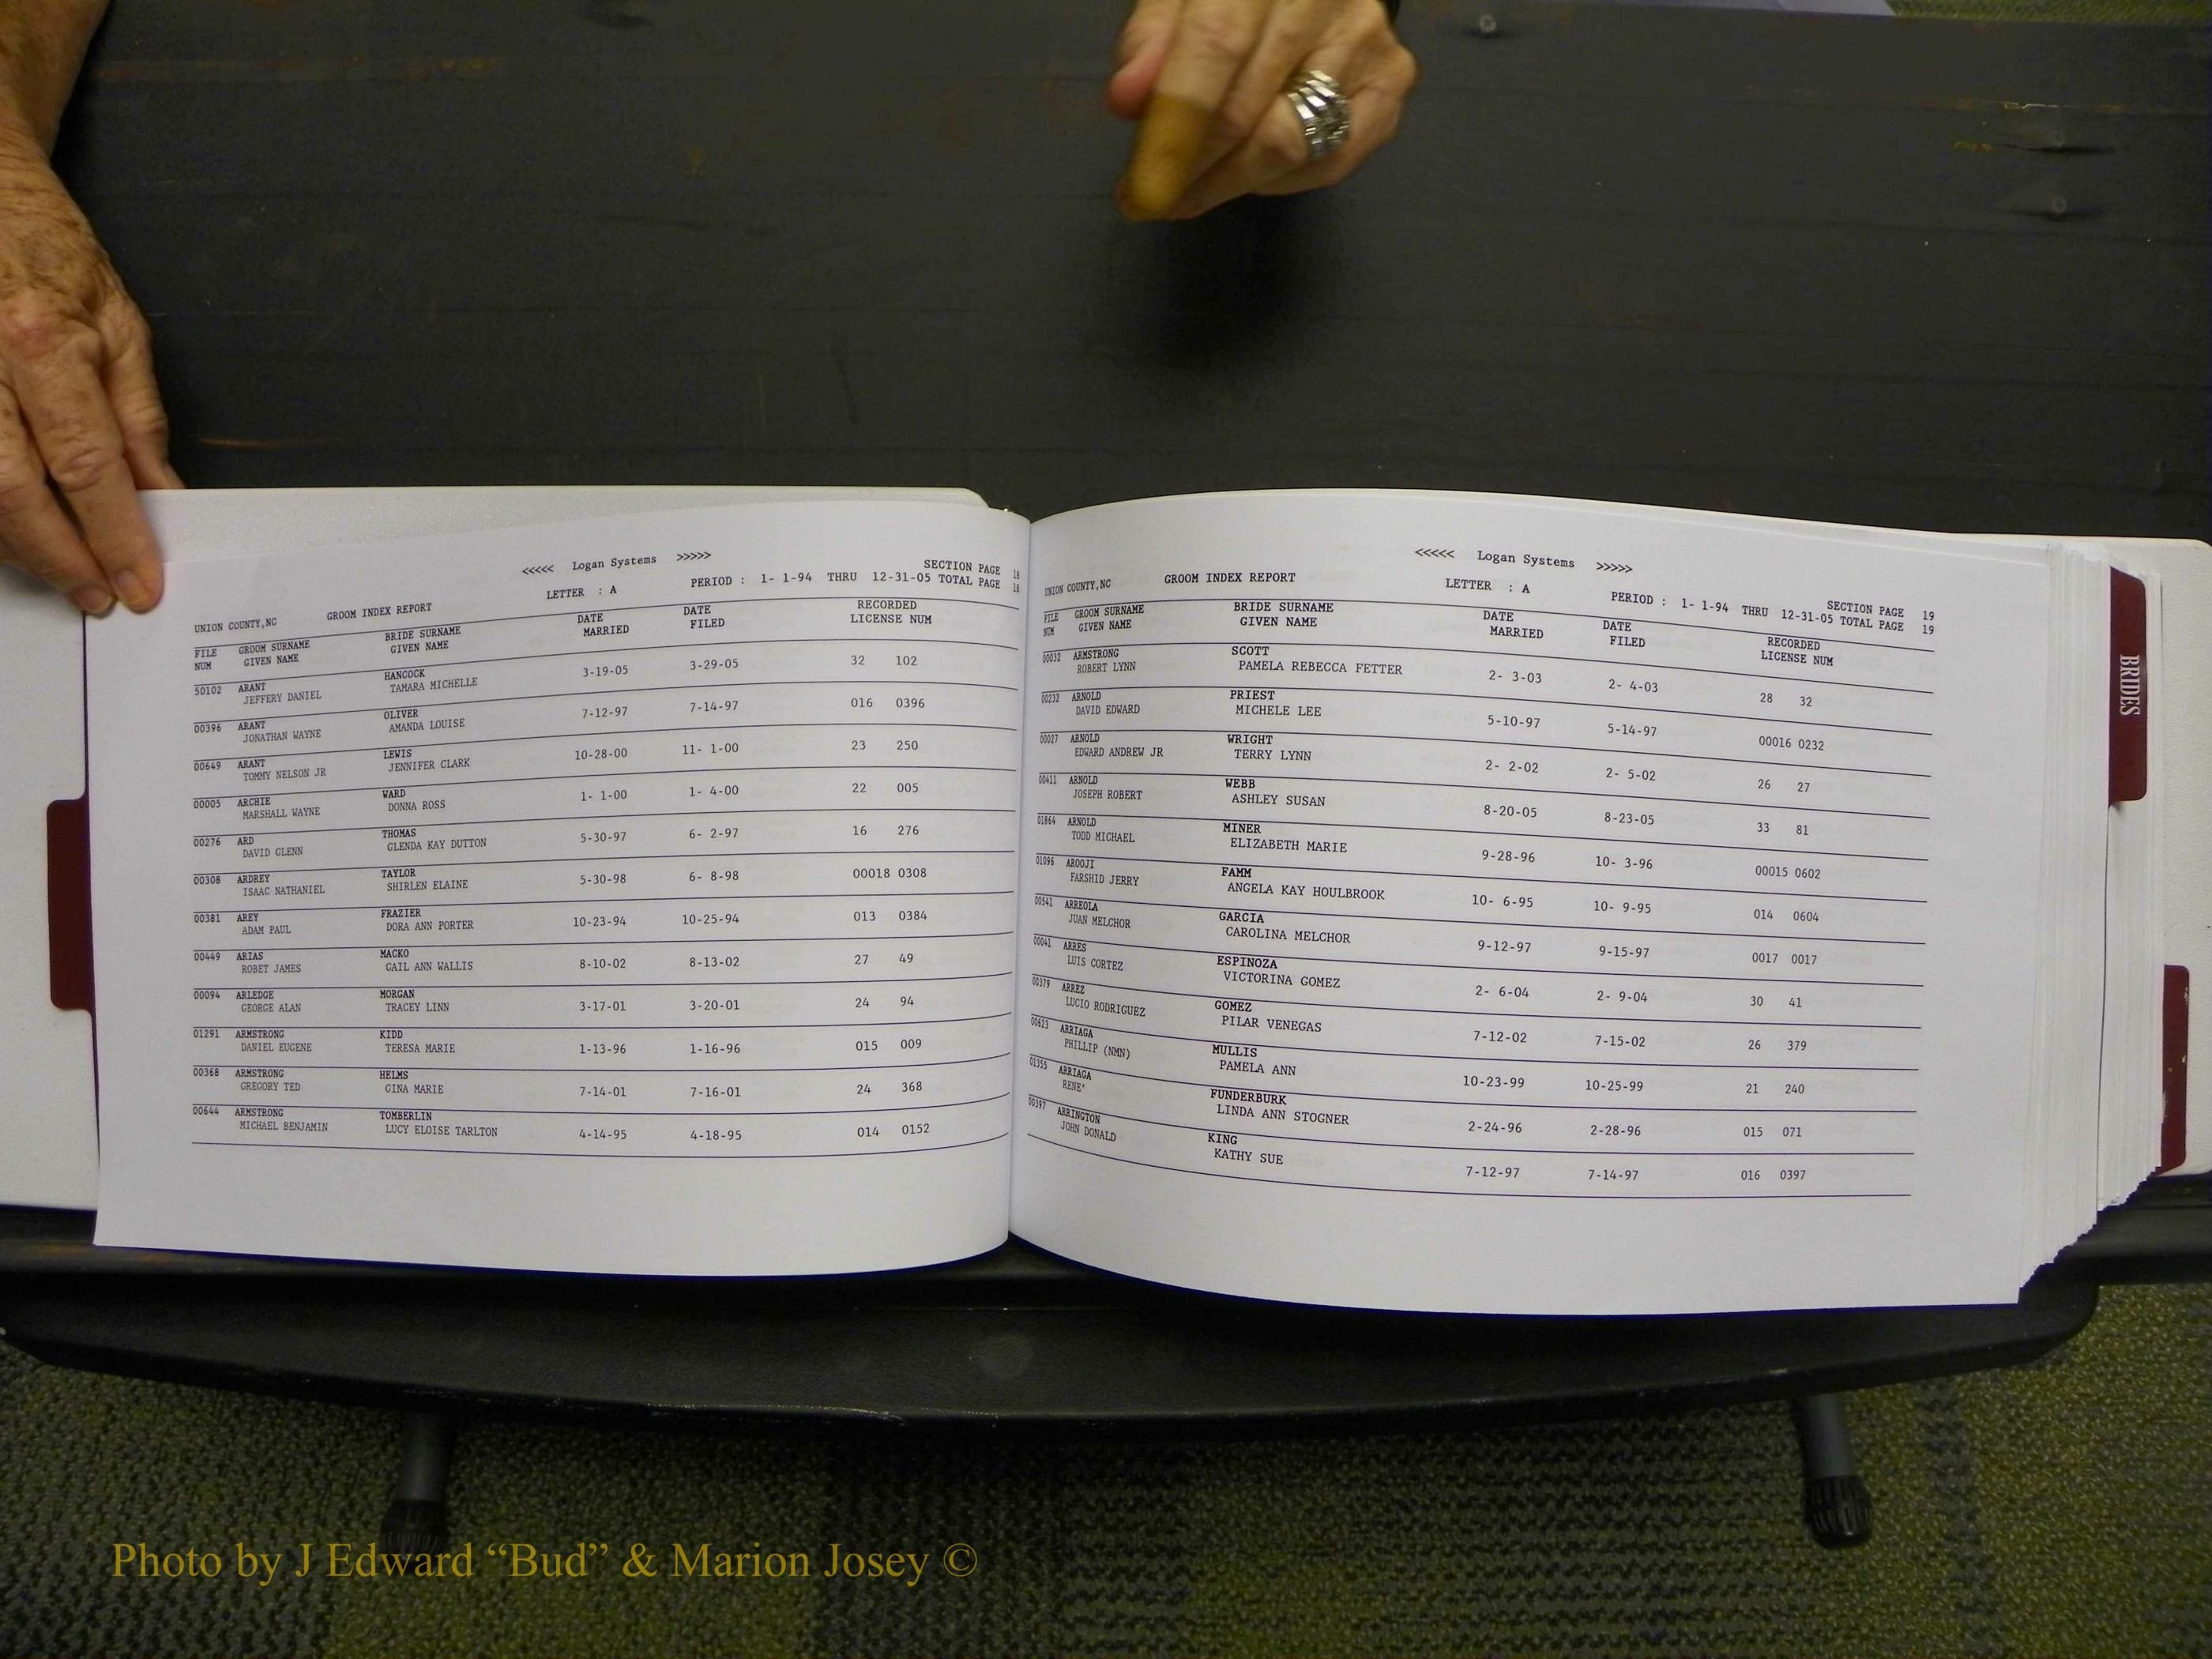 <<<<< Logan Systems >>>>>
SECTION PAGE 18
UNION COUNTY,NC GROOM INDEX REPORT LETTER : A PERIOD : 1- 1-94 THRU 12-31-05 TOTAL PAGE 18
FILE GROOM SURNAME BRIDE SURNAME DATE DATE RECORDED
NUM GIVEN NAME GIVEN NAME MARRIED FILED LICENSE NUM
50102 ARANT HANCOCK 3-19-05 3-29-05 32 102
JEFFERY DANIEL TAMARA MICHELLE
00396 ARANT OLIVER 7-12-97 7-14-97 016 0396
JONATHAN WAYNE AMANDA LOUISE
00649 ARANT LEWIS 10-28-00 11- 1-00 23 250
TOMMY NELSON JR JENNIFER CLARK
00005 ARCHIE WARD 1- 1-00 1- 4-00 22 005
MARSHALL WAYNE DONNA ROSS
00276 ARD THOMAS 5-30-97 6- 2-97 16 276
DAVID GLENN GLENDA KAY DUTTON
00308 ARDREY TAYLOR 5-30-98 6- 8-98 00018 0308
ISAAC NATHANIEL SHIRLEN ELAINE
00381 AREY FRAZIER 10-23-94 10-25-94 013 0384
ADAM PAUL DORA ANN PORTER
00449 ARIAS MACKO 8-10-02 8-13-02 27 49
ROBET JAMES GAIL ANN WALLIS
00094 ARLEDGE MORGAN 3-17-01 3-20-01 24 94
GEORGE ALAN TRACEY LINN
01291 ARMSTRONG KIDD 1-13-96 1-16-96 015 009
DANIEL EUGENE TERESA MARIE
00368 ARMSTRONG HELMS 7-14-01 7-16-01 24 368
GREGORY TED GINA MARIE
00644 ARMSTRONG TOMBERLIN 4-14-95 4-18-95 014 0152
MICHAEL BENJAMIN LUCY ELOISE TARLTON
<<<<< Logan Systems >>>>>
SECTION PAGE 19
UNION COUNTY,NC GROOM INDEX REPORT LETTER : A PERIOD : 1- 1-94 THRU 12-31-05 TOTAL PAGE 19
FILE GROOM SURNAME BRIDE SURNAME DATE DATE RECORDED
NUM GIVEN NAME GIVEN NAME MARRIED FILED LICENSE NUM
00032 ARMSTRONG SCOTT 2- 3-03 2- 4-03 28 32
ROBERT LYNN PAMELA REBECCA FETTER
00232 ARNOLD PRIEST 5-10-97 5-14-97 00016 0232
DAVID EDWARD MICHELE LEE
00027 ARNOLD WRIGHT 2- 2-02 2- 5-02 26 27
EDWARD ANDREW JR TERRY LYNN
00411 ARNOLD WEBB 8-20-05 8-23-05 33 81
JOSEPH ROBERT ASHLEY SUSAN
01864 ARNOLD MINER 9-28-96 10- 3-96 00015 0602
TODD MICHAEL ELIZABETH MARIE
01096 AROOJI FAMM 10- 6-95 10- 9-95 014 0604
FARSHID JERRY ANGELA KAY HOULBROOK
00541 ARREOLA GARCIA 9-12-97 9-15-97 0017 0017
JUAN MELCHOR CAROLINA MELCHOR
00041 ARRES ESPINOZA 2- 6-04 2- 9-04 30 41
LUIS CORTEZ VICTORINA GOMEZ
00379 ARREZ GOMEZ 7-12-02 7-15-02 26 379
LUCIO RODRIGUEZ PILAR VENEGAS
00623 ARRIAGA MULLIS 10-23-99 10-25-99 21 240
PHILLIP (NMN) PAMELA ANN
01355 ARRIAGA FUNDERBURK 2-24-96 2-28-96 015 071
RENE' LINDA ANN STOGNER
00397 ARRINGTON KING 7-12-97 7-14-97 016 0397
JOHN DONALD KATHY SUE
BRIDES
Photo by J Edward “Bud” & Marion Josey ©